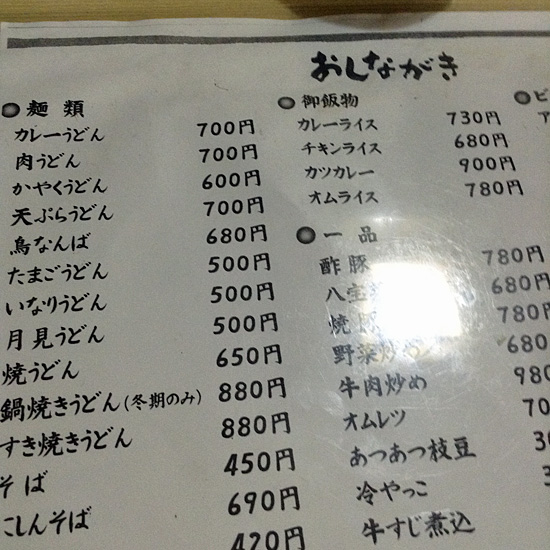 おしながき
麺類
カレーうどん 700円
肉うどん 700円
かやくうどん 600円
天ぷらうどん 700円
鳥なんば 680円
たまごうどん 500円
いなりうどん 500円
月見うどん 500円
焼うどん 650円
鍋焼きうどん(冬期のみ) 880円
すき焼きうどん 880円
そば 450円
にしんそば 690円
420円
御飯物
カレーライス 730円
チキンライス 680円
カツカレー 900円
オムライス 780円
一品
酢豚 780円
八宝 680円
焼豚 780
野菜炒め 680
牛肉炒め 980
オムレツ 70
あつあつ枝豆 30
冷やっこ
牛すじ煮込
ビ
ア